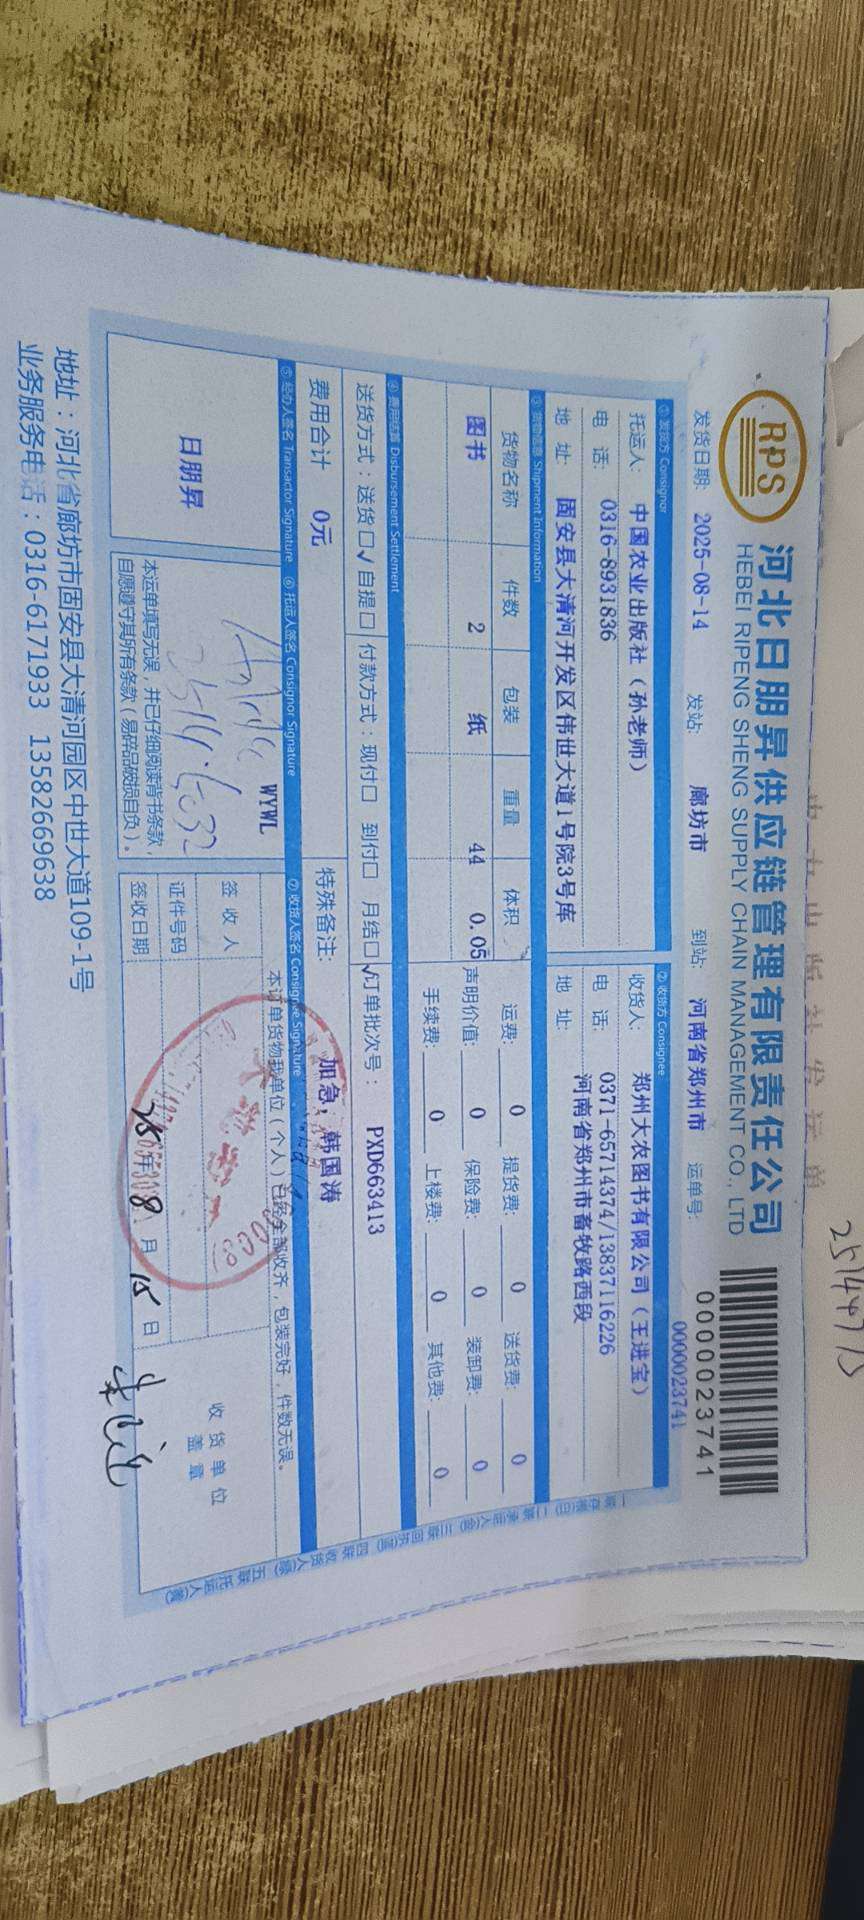 RPS
河北日朋昇供应链管理有限责任公司
HEBEI RIPENG SHENG SUPPLY CHAIN MANAGEMENT CO., LTD
0000023741
0000023741
发货日期: 2025-08-14 发站: 廊坊市 到站: 河南省郑州市 运单号:
① 发货方 Consignor ② 收货方 Consignee
托运人: 中国农业出版社(孙老师) 收货人: 郑州大农图书有限公司(王进宝)
电 话: 0316-8931836 电 话: 0371-65714374/13837116226
地 址: 固安县大清河开发区伟世大道1号院3号库 地 址: 河南省郑州市畜牧路西段
③ 货物信息 Shipment Information
货物名称 件数 包装 重量 体积 运费: 0 提货费: 0 送货费: 0
图书 2 纸 44 0.05 声明价值: 0 保险费: 0 装卸费: 0
手续费: 0 上楼费: 0 其他费: 0
④ 费用结算 Disbursement Settlement
送货方式:送货□√ 自提□ 付款方式:现付□ 到付□ 月结□√ 订单批次号: PXD663413
费用合计 0元 特殊备注: 加急,韩国涛
⑤ 经办人签名 Transactor Signature ⑥ 托运人签名 Consignor Signature ⑦ 收货人签名 Consignee Signature
日朋昇
WYWL
本运单填写无误,并已仔细阅读背书条款,
自愿遵守其所有条款(易碎品破损自负)。
本订单货物我单位(个人)已经全部收齐,包装完好,件数无误。
签收人
证件号码
签收日期 25年8月15日
收货单位
盖章
地址:河北省廊坊市固安县大清河园区中世大道109-1号
业务服务电话:0316-6171933 13582669638